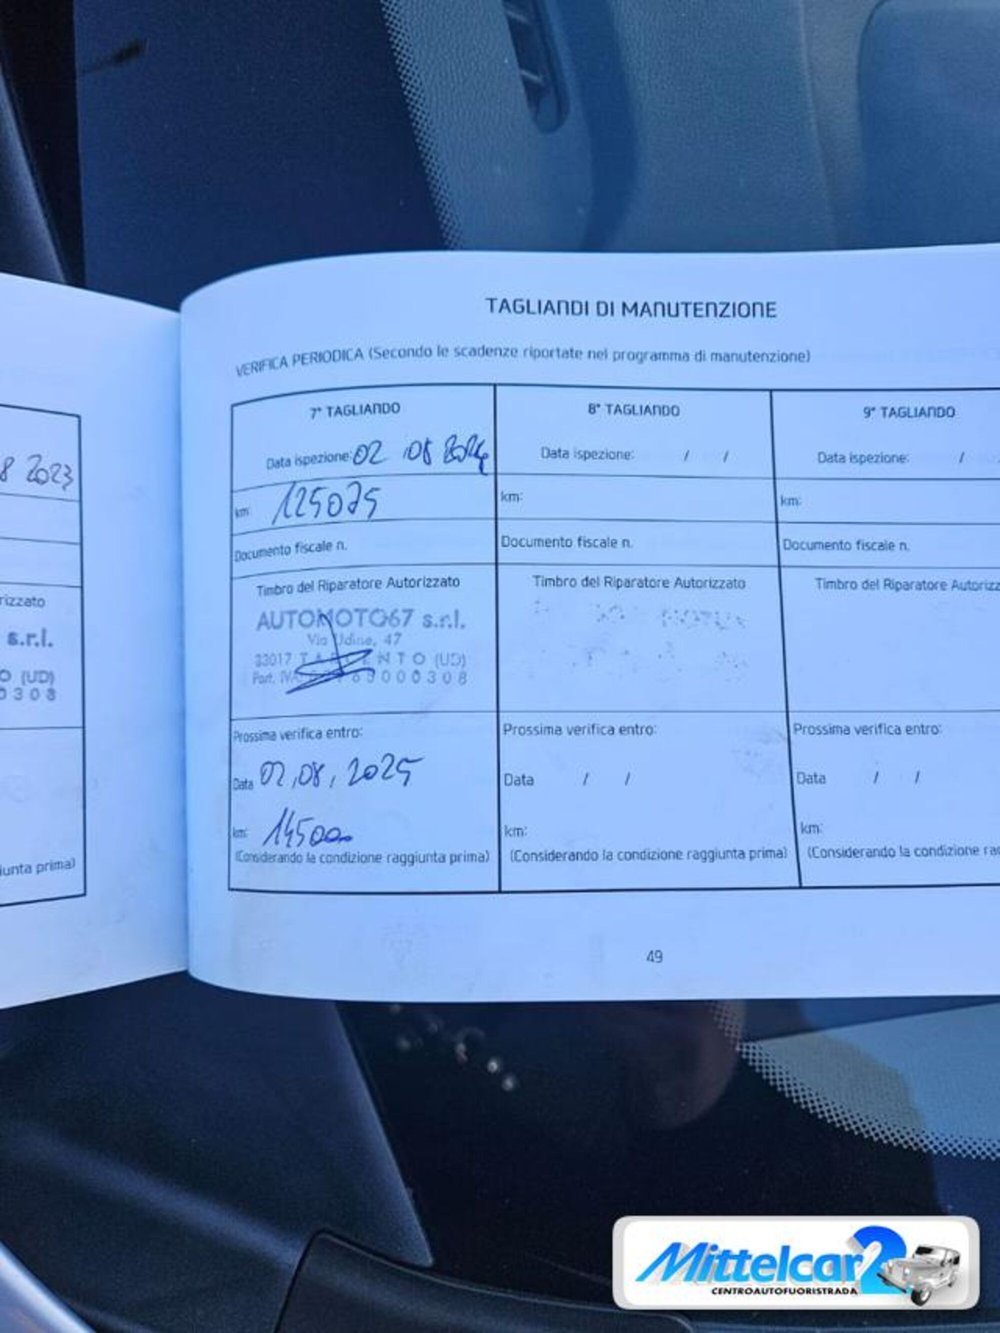 8 2023
rizzato
s.r.l.
O (UD)
0308
iunta prima)
TAGLIANDI DI MANUTENZIONE
VERIFICA PERIODICA (Secondo le scadenze riportate nel programma di manutenzione)
7° TAGLIANDO
Data ispezione: 02 08 2024
km: 125075
Documento fiscale n.
Timbro del Riparatore Autorizzato
AUTOMOTO67 s.r.l.
Via Udine, 47
33017 TARCENTO (UD)
Part. IVA 000308
Prossima verifica entro:
Data 02,08,2025
km: 145000
(Considerando la condizione raggiunta prima)
8° TAGLIANDO
Data ispezione: / /
km:
Documento fiscale n.
Timbro del Riparatore Autorizzato
Prossima verifica entro:
Data / /
km:
(Considerando la condizione raggiunta prima)
9° TAGLIANDO
Data ispezione: /
km:
Documento fiscale n.
Timbro del Riparatore Autorizz
Prossima verifica entro:
Data / /
km:
(Considerando la condizione ra
49
Mittelcar2
CENTROAUTOFUORISTRADA